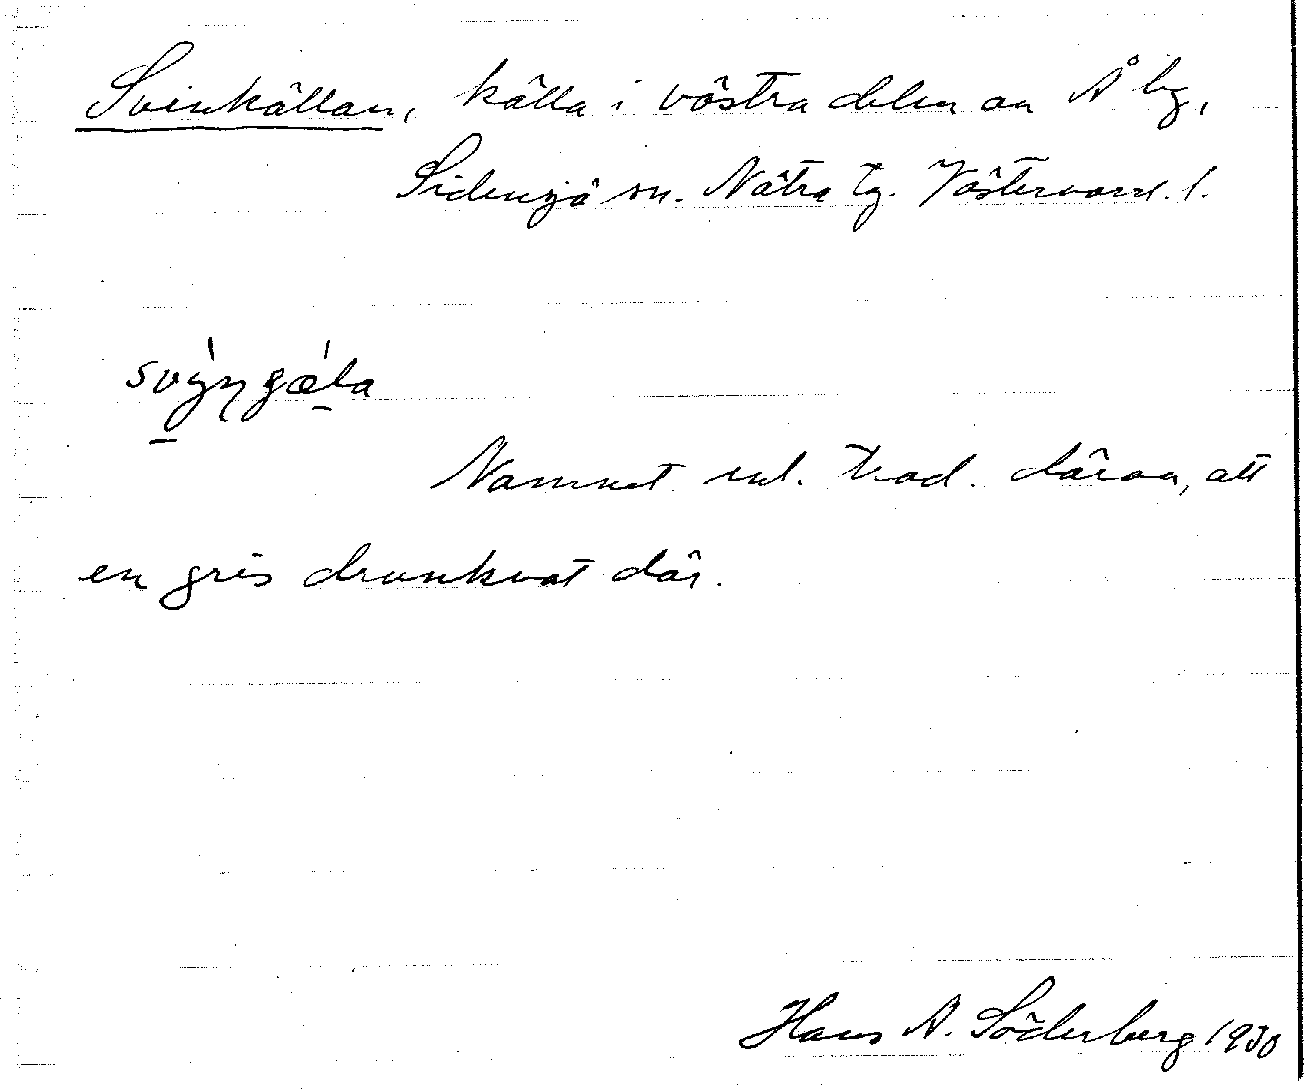 Svinkällan, källa i västra delen av Å by,
Sidensjö sn. Nätra tg. Västernorrl. l.
Namnet enl. trad. därav, att
en gris drunknat där.
Hans A. Söderberg 1930